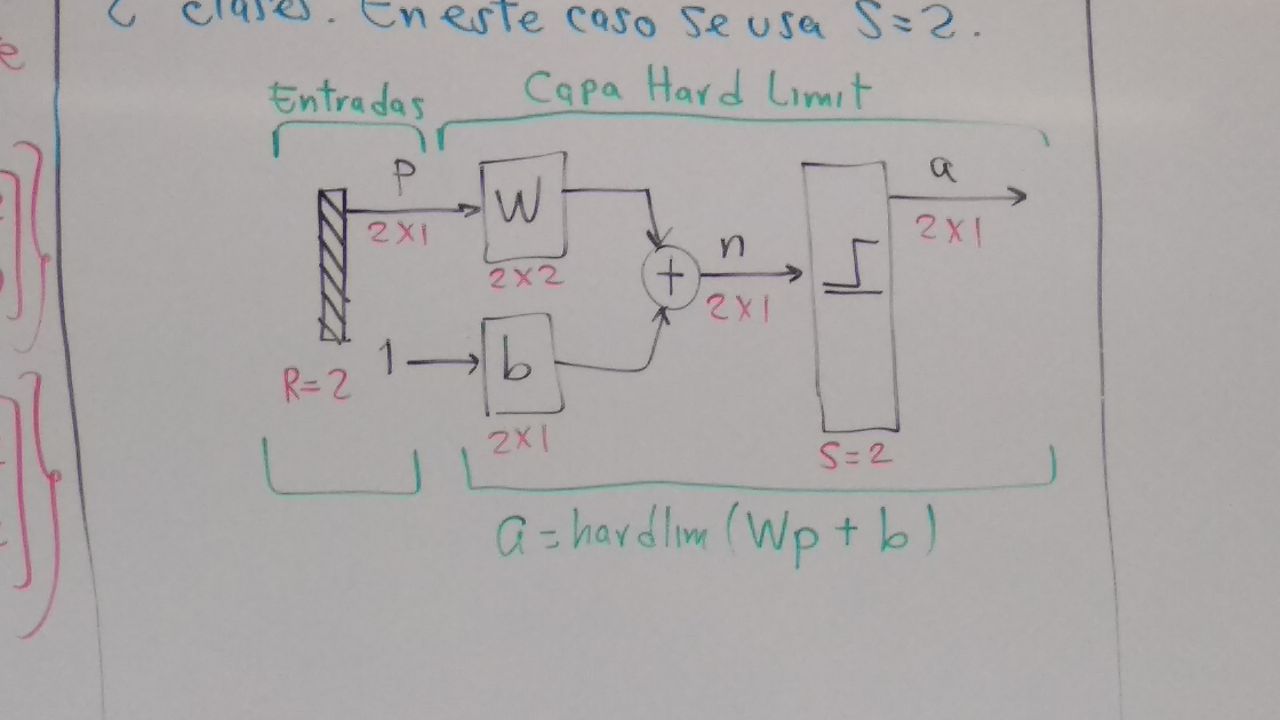 clases. En este caso se usa S=2.
Entradas
Capa Hard Limit
P
2x1
W
2x2
1
b
2x1
R=2
+
n
2x1
a
2x1
S=2
a=hardlim(Wp+b)